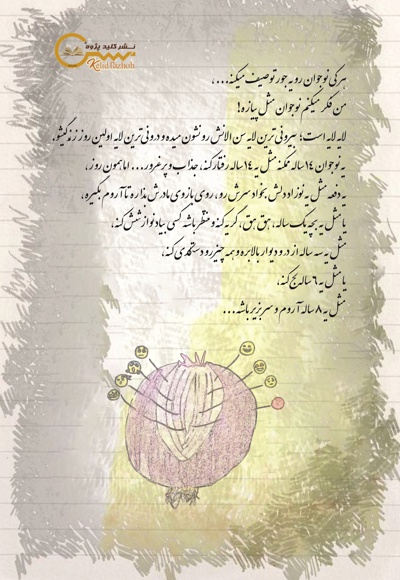 نشر کلید پژوه
KelidPazhoh
هر کی نوجوان رو یه جور توصیف میکنه...،
من فکر میکنم نوجوان مثل پیازه!
لایه لایه است؛ بیرونی ترین لایه سن الانش رو نشون میده و درونی ترین لایه اولین روز زندگیشو.
یه نوجوان ۱۴ ساله ممکنه مثل یه ۱۴ ساله رفتار کنه، جذاب و پر غرور... اما همون روز،
یه دفعه مثل یه نوزاد دلش بخواد سرش رو، روی بازوی مادرش بذاره تا آروم بگیره،
یا مثل یه بچه یک ساله، هق هق، گریه کنه و منتظر باشه کسی بیاد نوازشش کنه،
مثل یه سه ساله از در و دیوار بالا بره و همه چیز رو دستکاری کنه،
یا مثل یه ۶ ساله لج کنه،
مثل یه ۸ ساله آروم و سر بزیر باشه...